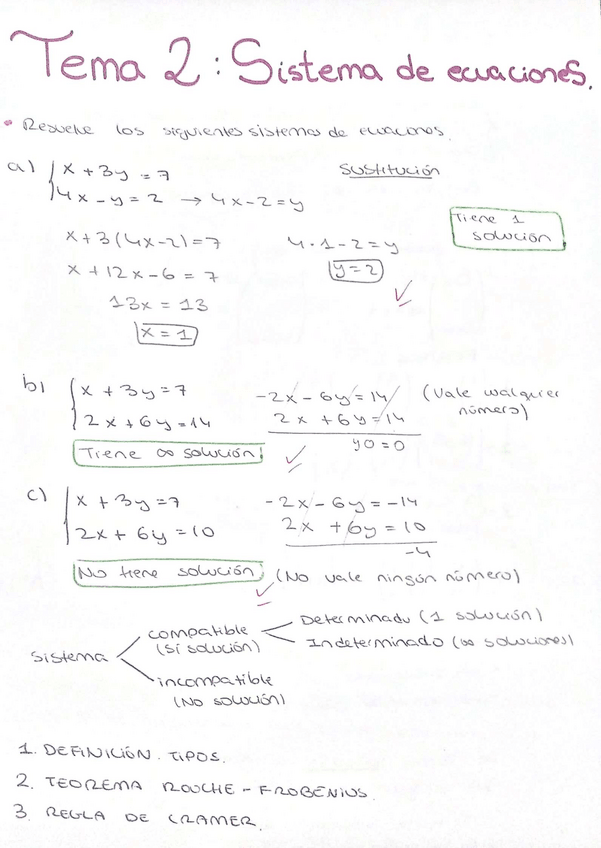 Tema 2: Sistema de ecuaciones.
• Resuelve los siguientes sistemas de ecuaciones.
a) { x + 3y = 7
4x - y = 2 → 4x - 2 = y
Sustitución
x + 3(4x - 2) = 7
x + 12x - 6 = 7
13x = 13
x = 1
4 · 1 - 2 = y
y = 2
✓
Tiene 1
solución
b) { x + 3y = 7
2x + 6y = 14
Tiene ∞ solución! ✓
-2x - 6y = 14
2x + 6y = 14
y0 = 0
(Vale cualquier
número)
c) { x + 3y = 7
2x + 6y = 10
-2x - 6y = -14
2x + 6y = 10
-4
No tiene solución; (No vale ningún número)
✓
Sistema
compatible
(Sí solución)
Determinado (1 solución)
Indeterminado (∞ soluciones)
incompatible
(No solución)
1. DEFINICIÓN. TIPOS.
2. TEOREMA ROUCHE - FROBENIUS.
3. REGLA DE CRAMER.